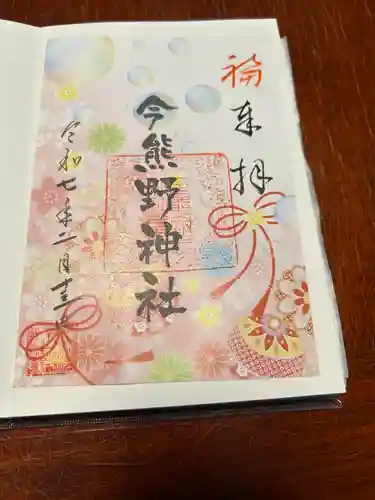 福
奉拝
今熊野神社
令和七年二月十三日